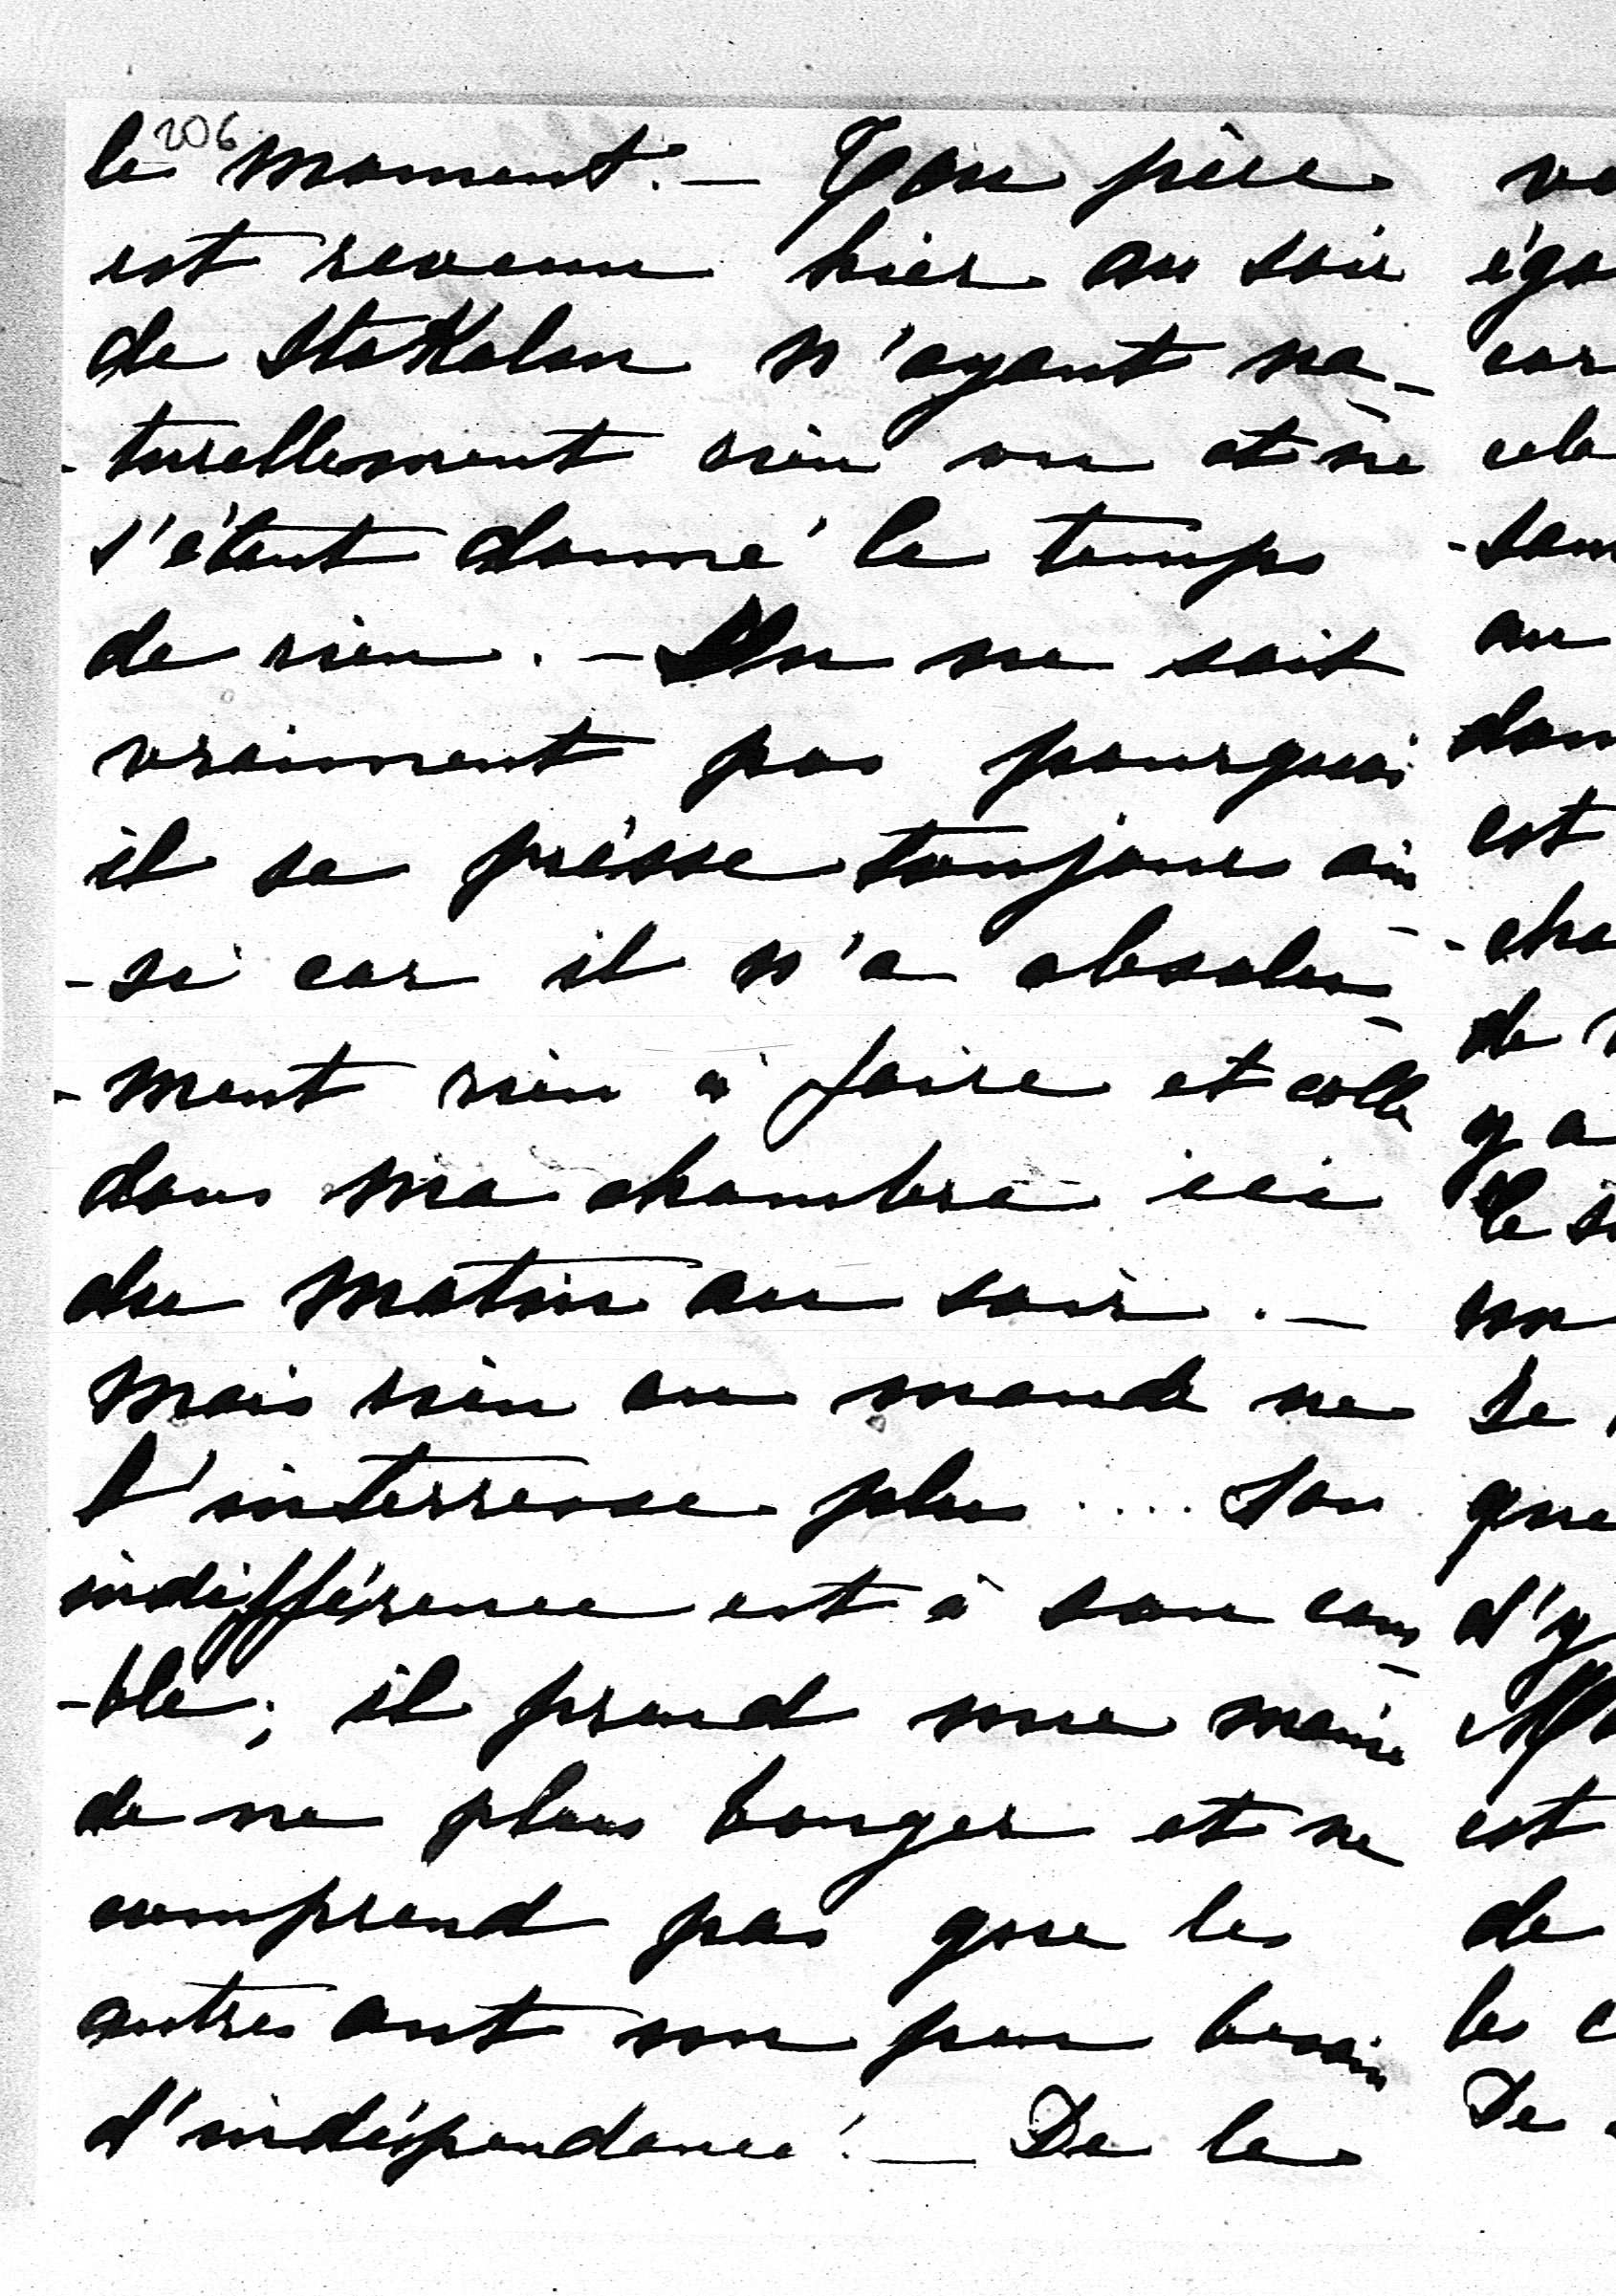 206
le moment. — Ton père
est revenu hier au soir
de Stokolm n'ayant na-
-turellement rien vu et ne
s'étant donné le temps
de rien. — On ne sait
vraiment pas pourquoi
il se présse toujours ain-
-si car il n'a absolu-
-ment rien à faire et colle
dans ma chambre ici
du matin au soir. —
Mais rien au monde ne
l'interresse plus .... Son
indifférence est à son com-
-ble; il prend une manie
de ne plus bouger et ne
comprend pas que les
autres ont un peu besoin
d'indépendance! — De le
éga
car
cela
-sam
au
dan
est
-cha
de
y a
le s
se
que
d'y
est
de
les c
De